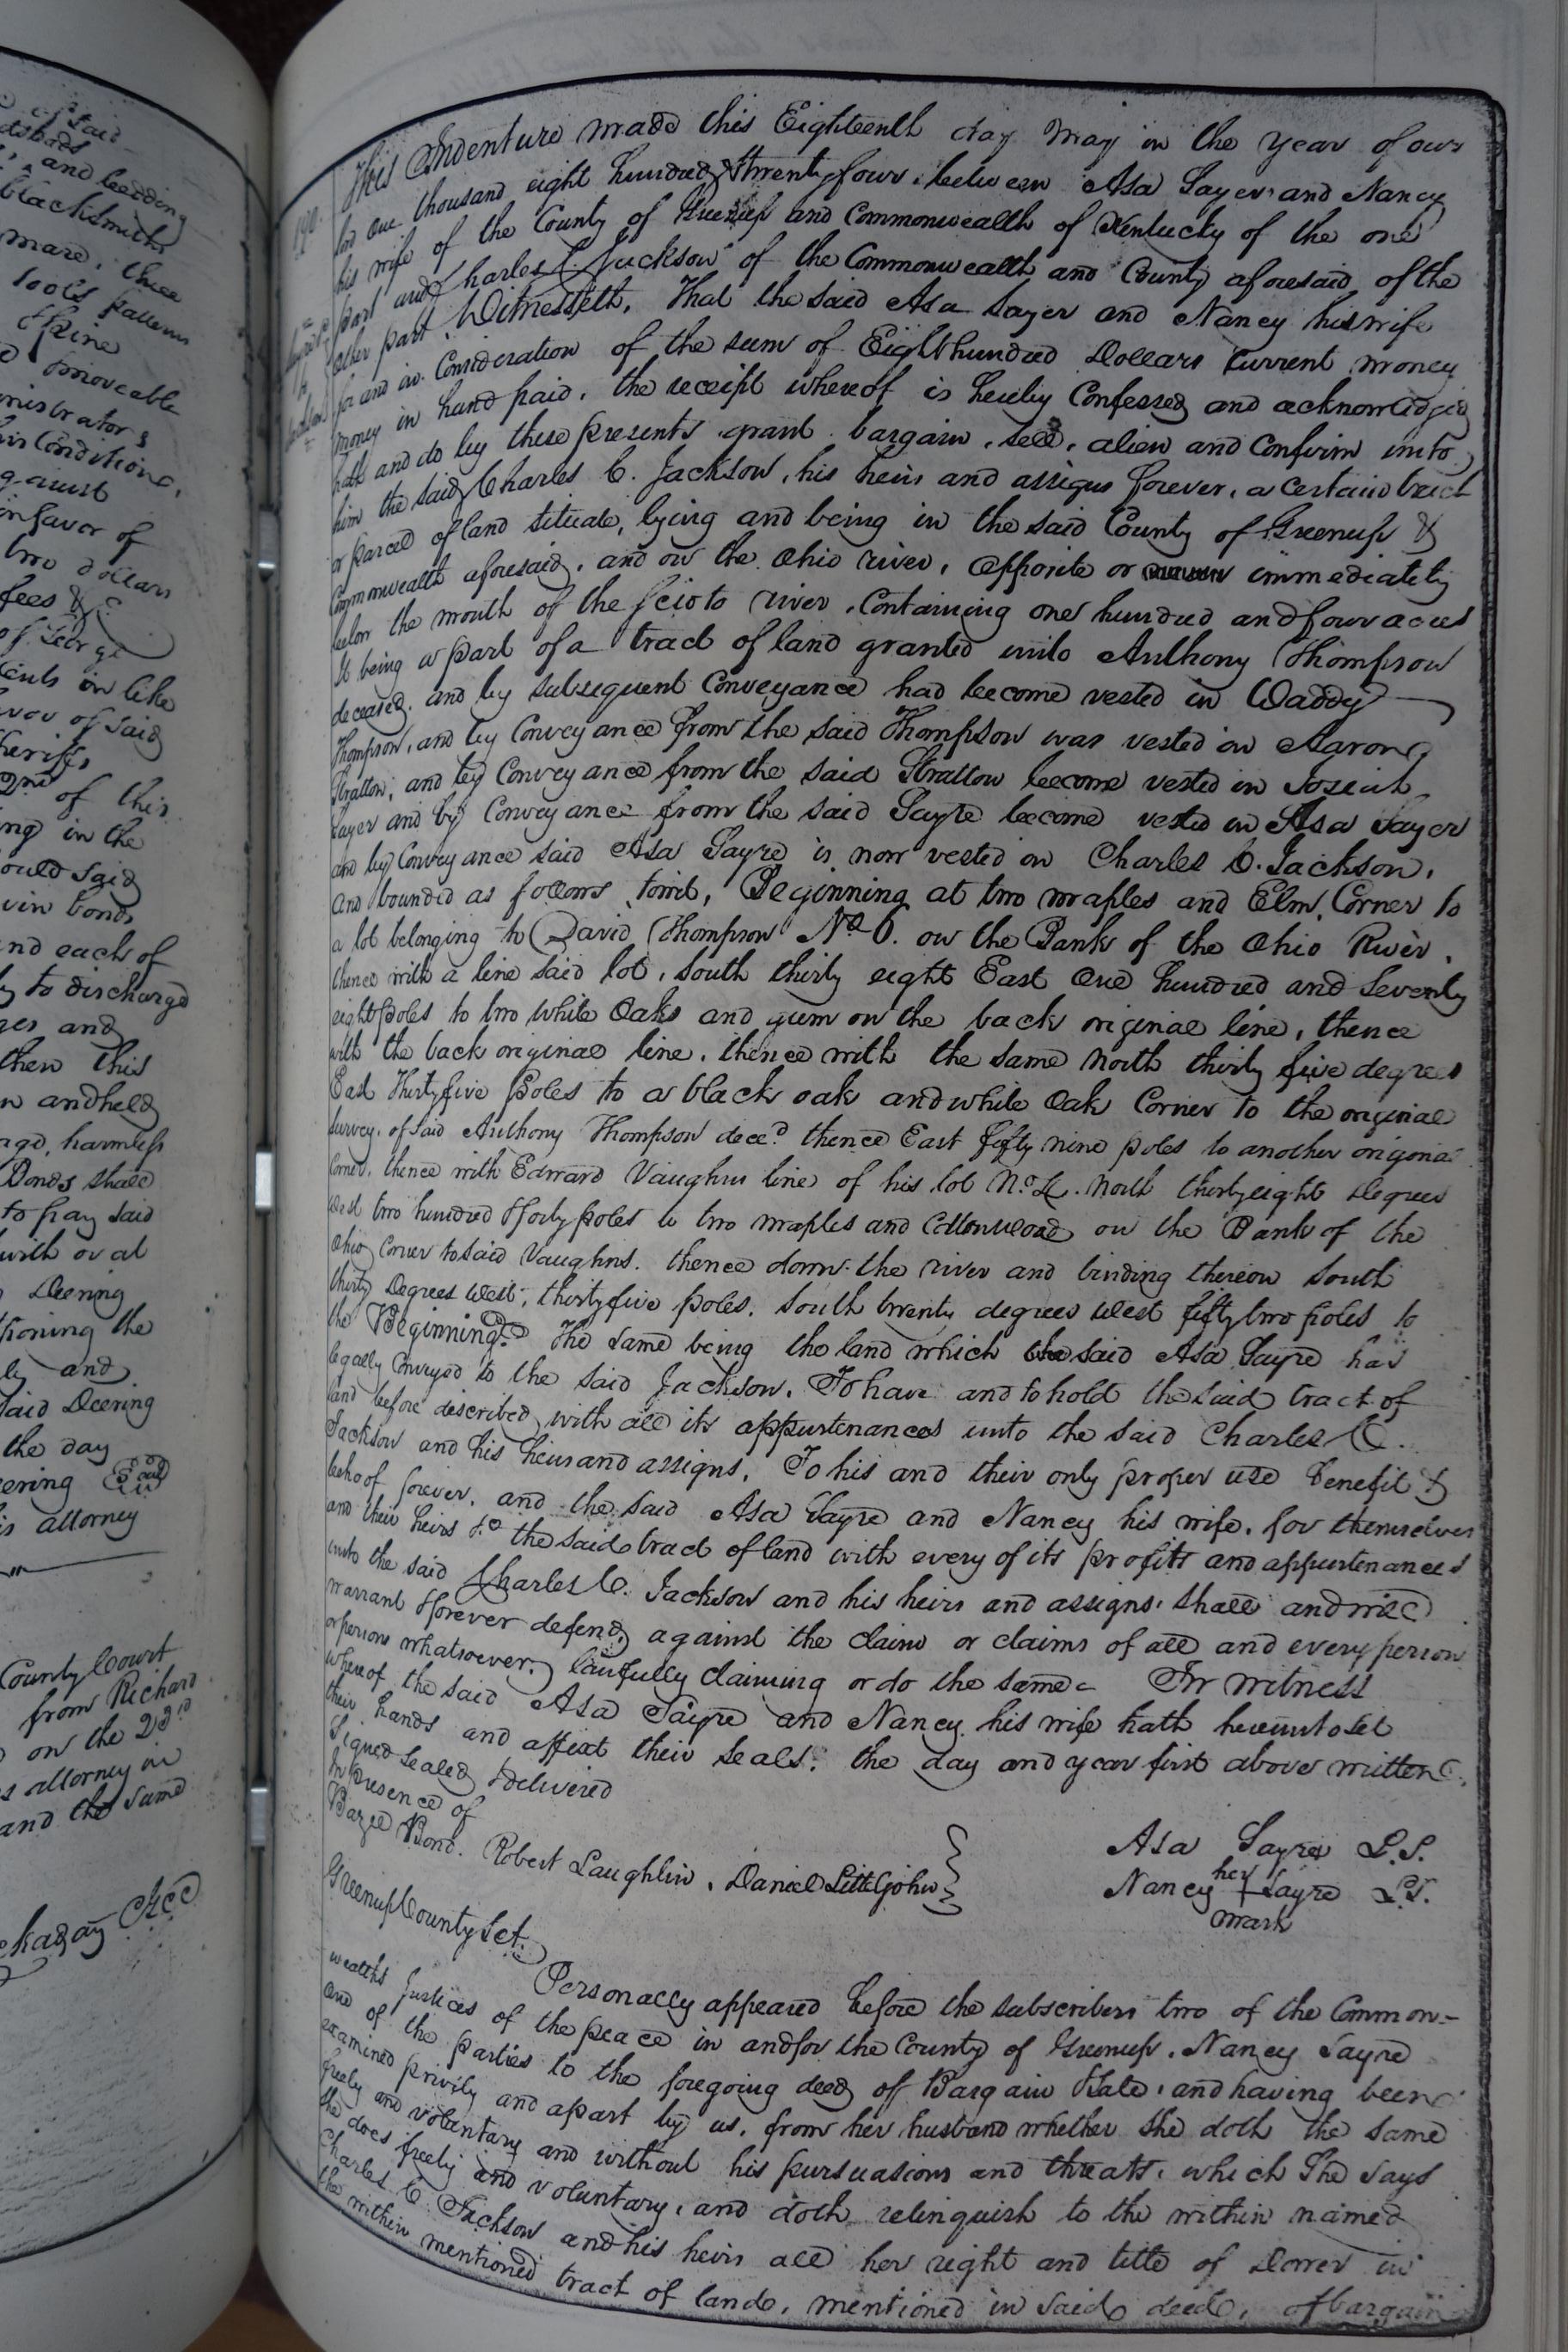 of said
and bedding
blacksmith
mare, three
tools
moveable
against
in favor of
two dollars
fees &c
of George
in like
of said
sheriff,
2nd of this
in the
said
bond,
and each of
to discharge
and
then this
and held
harmless
Bonds shall
to pay said
with or at
Deering
the
and
said Deering
the day
Deering Seal
his attorney
County Court
from Richard
on the 23rd
attorney in
and the same
190.
Jackson
This Indenture made this Eighteenth day May in the year of our
lord One thousand eight hundred & twenty four, between Asa Sayer and Nancy
his wife of the County of Greenup and Commonwealth of Kentucky of the one
part and Charles C. Jackson of the Commonwealth and County aforesaid of the
other part Witnesseth, That the said Asa Sayer and Nancy his wife
for and in Consideration of the sum of Eight hundred Dollars Current money
money in hand paid, the receipt whereof is hereby Confessed and acknowledged
hath and do by these presents grant bargain, sell, alien and confirm unto
him the said Charles C. Jackson, his heirs and assigns forever, a certain tract
or parcel of land situate, lying and being in the said County of Greenup &
Commonwealth aforesaid, and on the Ohio river, opposite or immediately
below the mouth of the scioto river, Containing one hundred and four acres
It being a part of a tract of land granted unto Anthony Thompson
deceased, and by subsequent Conveyance had become vested in Waddy
Thompson, and by Conveyance from the said Thompson was vested in Aaron
Stratton, and by Conveyance from the said Stratton become vested in Josiah
Sayer and by Conveyance from the said Sayre become vested in Asa Sayer
and by Conveyance said Asa Sayre is now vested in Charles C. Jackson,
and bounded as follows, towit, Beginning at two maples and Elm, Corner to
a lot belonging to David Thompson No 6. on the Bank of the Ohio River,
thence with a line said lot, south thirty eight East One hundred and Seventy
eight poles to two white Oaks and gum on the back original line, thence
with the back original line, thence with the same North thirty five degrees
East Thirty five poles to a black oak and white Oak Corner to the original
survey of said Anthony Thompson decd thence East fifty nine poles to another original
Corner, thence with Edward Vaughns line of his lot No 4. North thirty eight Degrees
west two hundred & forty poles to two maples and Cottonwood on the Bank of the
Ohio, Corner to said Vaughns. thence down the river and binding thereon South
thirty Degrees West, thirty five poles. South twenty degrees west fifty two poles to
the Beginning. The same being the land which the said Asa Sayre has
legally Conveyed to the said Jackson. To have and to hold the said tract of
land before described with all its appurtenances unto the said Charles C.
Jackson and his heirs and assigns, To his and their only proper use benefit &
behoof forever, and the said Asa Sayre and Nancy his wife, for themselves
and their heirs &c the said tract of land with every of its profits and appurtenances
unto the said Charles C. Jackson and his heirs and assigns, shall and will
warrant & forever defend, against the claim or claims of all and every person
or persons whatsoever, lawfully claiming or do the same. In witness
whereof the said Asa Sayre and Nancy his wife hath hereunto set
their hands and affixt their seals, the day and year first above written.
Signed sealed & delivered
In presence of
Bazel Bond. Robert Laughlin, Daniel Littlejohn
Asa Sayre L.S.
her
Nancy + Sayre L.S.
mark
Greenup County Sct.
Personally appeared before the subscribers two of the Common-
wealths Justices of the peace in and for the County of Greenup, Nancy Sayre
one of the parties to the foregoing deed of Bargain & Sale, and having been
examined privily and apart by us, from her husband whether she doth the same
freely and voluntary and without his pursuasions and threats, which She says
she does freely and voluntary, and doth relinquish to the within named
Charles C. Jackson and his heirs all her right and title of Dower in
the within mentioned tract of land, mentioned in said deed, of bargain